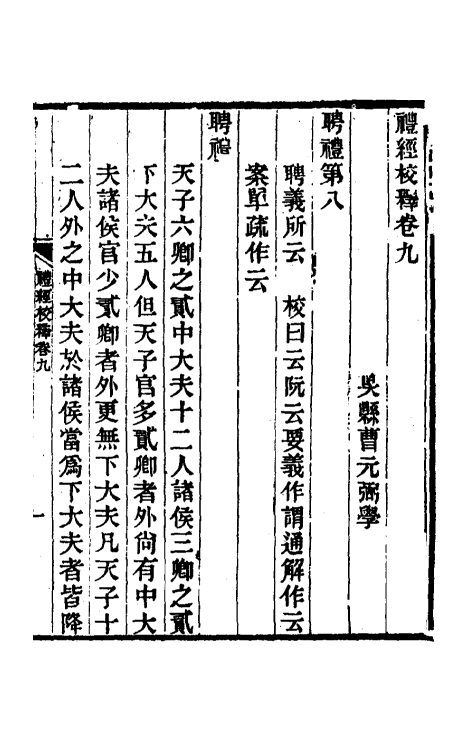 禮經校釋卷九
吳縣曹元弼學
聘禮第八
聘義所云　校曰云阮云要義作謂通解作云
案單疏作云
聘禮
天子六卿之貳中大夫十二人諸侯三卿之貳
下大夫五人但天子官多貳卿者外尙有中大
夫諸侯官少貳卿者外更無下大夫凡天子十
二人外之中大夫於諸侯當爲下大夫者皆降
禮經校釋卷九
一